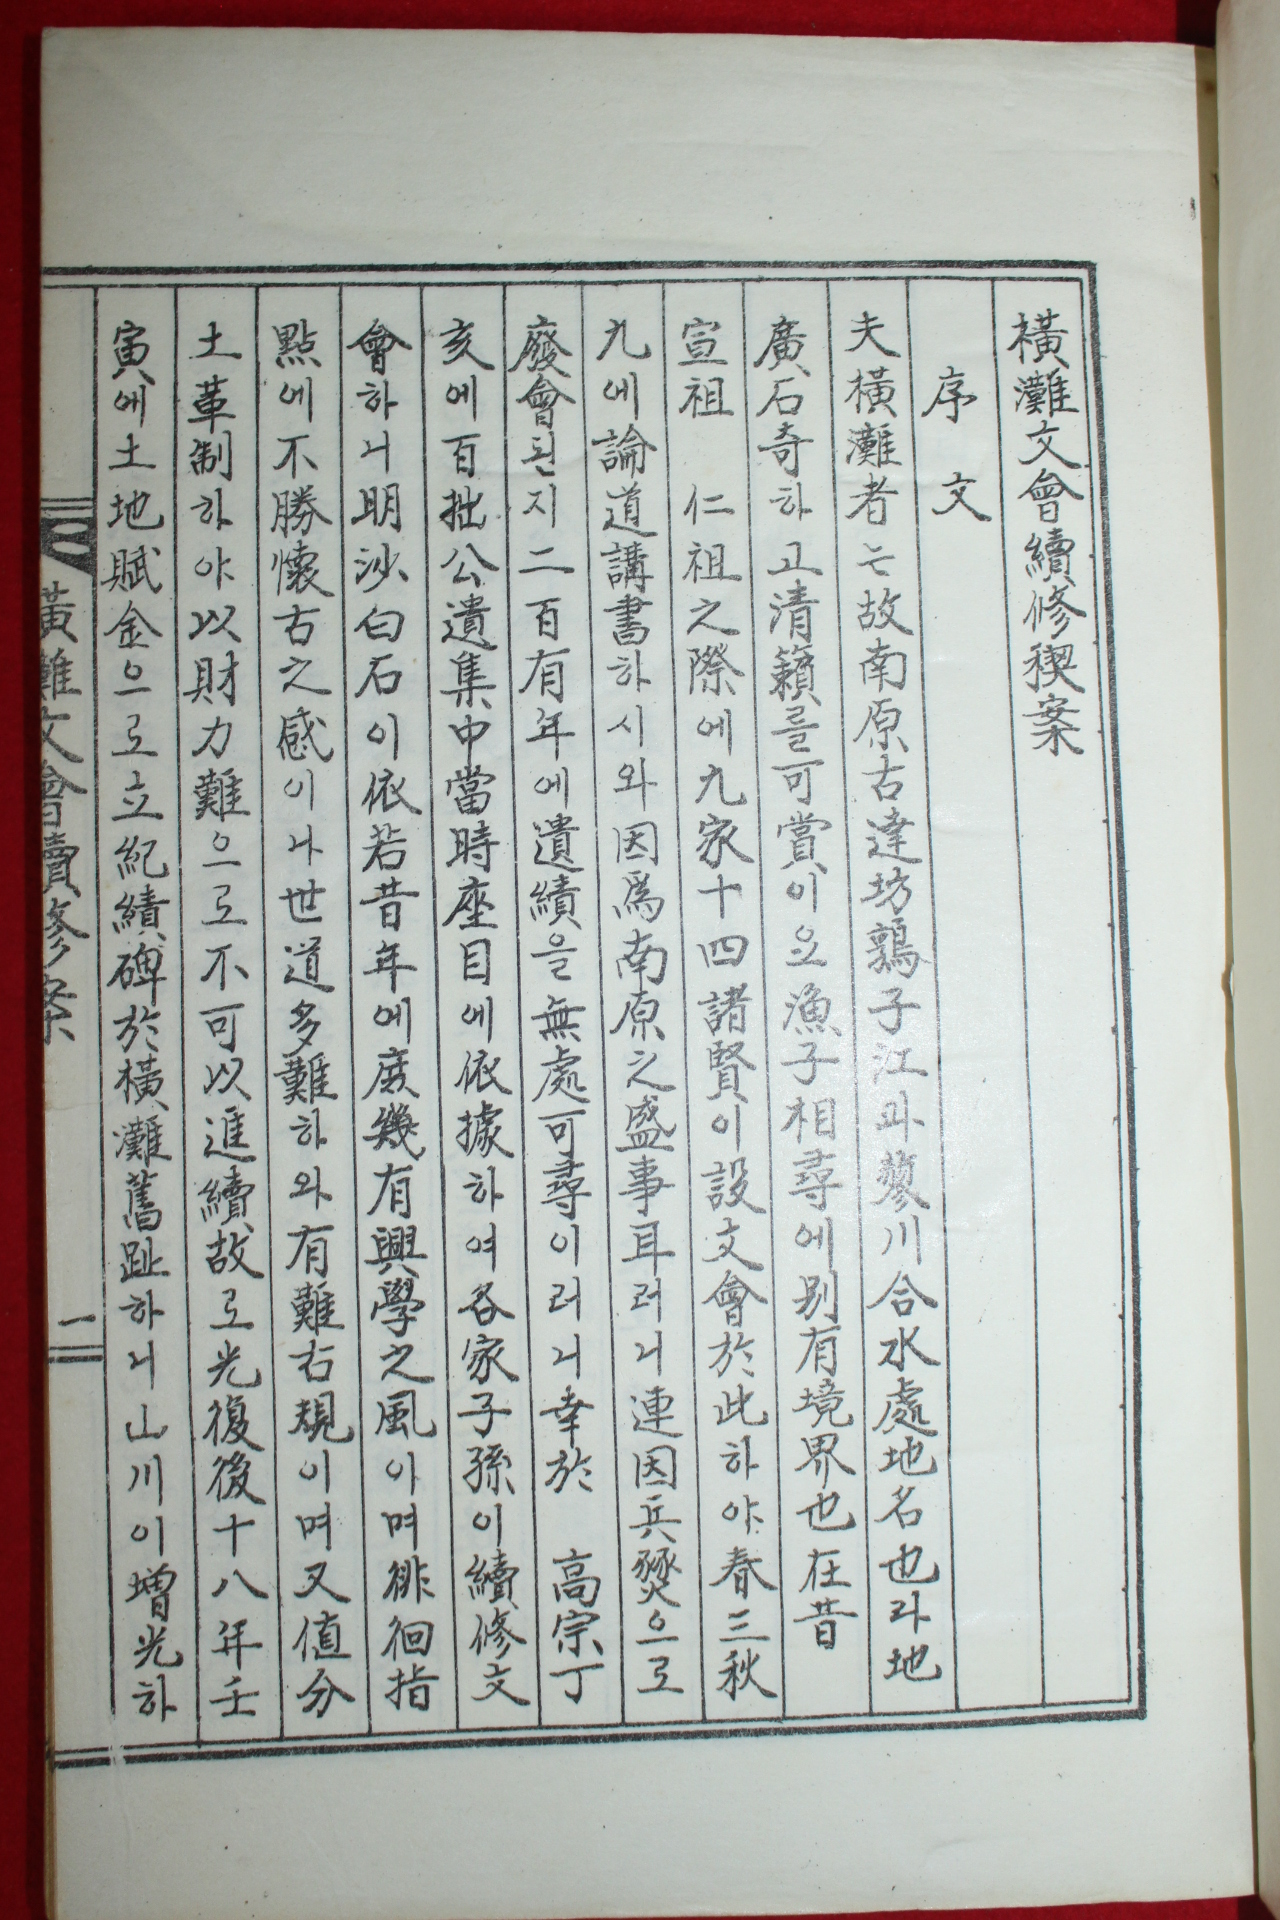 橫灘文會續修稧案
序文
夫橫灘者는故南原古達坊鶉子江과蓼川合水處地名也라地
廣石奇하고清籟를可賞이으漁子相尋에別有境界也在昔
宣祖 仁祖之際에九家十四諸賢이設文會於此하야春三秋
九에論道講書하시와因爲南原之盛事耳러니連因兵燹으로
廢會된지二百有年에遺績을無處可尋이러니幸於 高宗丁
亥에百拙公遺集中當時座目에依據하여各家子孫이續修文
會하니明沙白石이依若昔年에庶幾有興學之風아며徘徊指
點에不勝懷古之感이나世道多難하와有難右規이며又値分
土革制하야以財力難으로不可以進續故로光復後十八年壬
寅에土地賦金으로立紀績碑於橫灘舊趾하니山川이增光하
黃難文會續修案 一